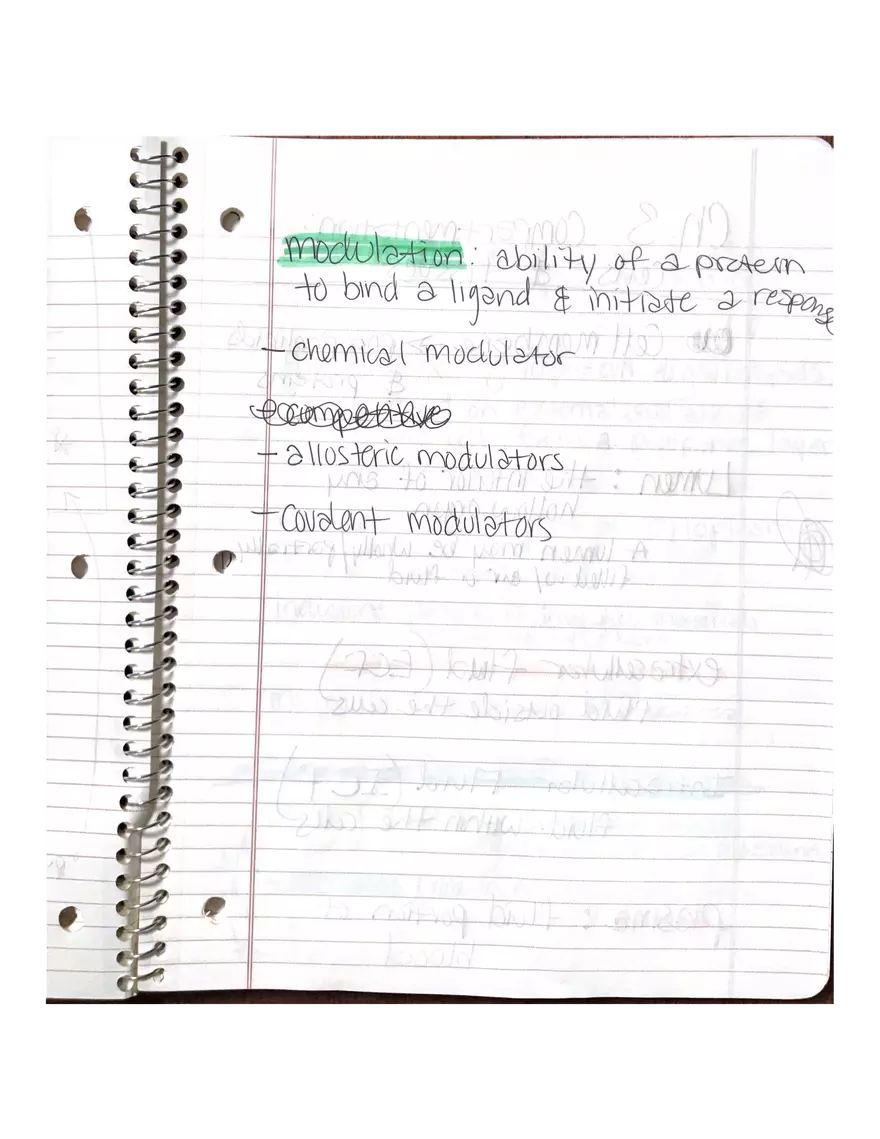 modulation: ability of a protein
to bind a ligand & initiate a response
- chemical modulator
- competitive
- allosteric modulators
- Covalent modulators